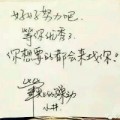 好好努力吧.
等你优秀了.
你想要的都会来找你?
小井